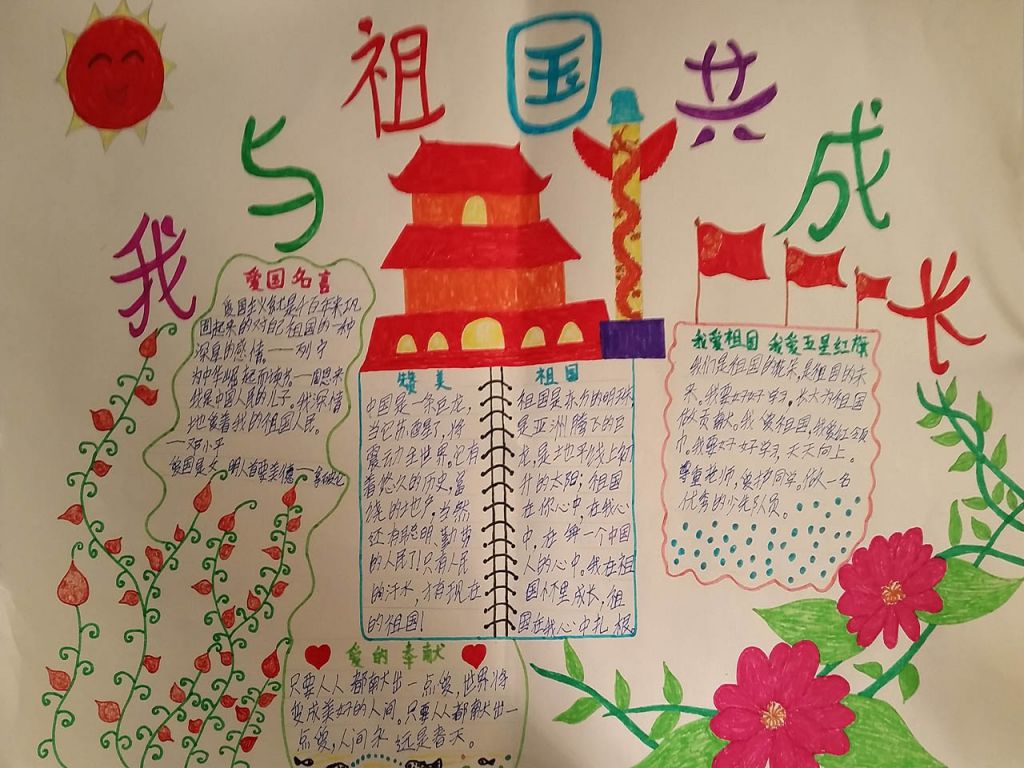 我与祖国共成长
爱国名言
爱国主义就是千百年来巩
固起来的对自己祖国的一种
深厚的感情——列宁
为中华崛起而读书——周恩来
我是中国人民的儿子,我深情
地爱着我的祖国人民。
——邓小平
爱国是文明人首要美德——拿破仑
赞美
中国是一条巨龙,
当它苏醒了,将
震动全世界。它有
着悠久的历史,富
饶的土地,当然
还有聪明、勤劳
的人民了!只有人民
的汗水,才有现在
的祖国!
祖国
祖国是东方的明珠,
是亚洲腾飞的巨
龙,是地平线上初
升的太阳;祖国
在你心中,在我心
中,在每一个中国
人的心中。我在祖
国怀里成长,祖
国在我心中扎根
我爱祖国 我爱五星红旗
我们是祖国的花朵,是祖国的未
来,我要好好学习,长大为祖国
做贡献。我爱祖国,我爱红领
巾,我要好好学习,天天向上。
尊重老师,爱护同学。做一名
优秀的少先队员。
爱的奉献
只要人人都献出一点爱,世界将
变成美好的人间。只要人人都献出一
点爱,人间永远是春天。